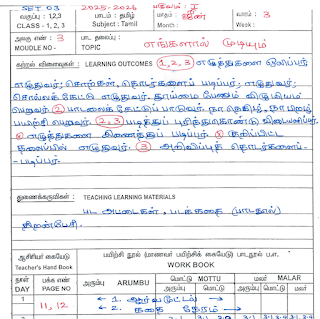 SET 03 2025-2026 பருவம் - I
வகுப்பு - 1,2,3 பாடம் : தமிழ் மாதம் : ஜூன் வாரம் : 3
CLASS - 1, 2, 3 Subject : Tamil Month : Week :
அலகு எண் - 3 பாட தலைப்பு :
MOUDLE NO - TOPIC எங்களால் முடியும்
கற்றல் விளைவுகள் : LEARNING OUTCOMES 1, 2, 3 எழுத்துகளை ஒலிப்பர்
எழுதுவர்; சொற்கள், தொடர்களைப் படிப்பர்; எழுதுவர்;
சொல்வதைக் கேட்டு எழுதுவர். தூய்மை பேணும்
பெறுவர். 2 பாடலைக் கேட்டுப் பாடுவர். நா நெகிழ், நா பிறழ்
பயிற்சி பெறுவர். 2, 3 படித்துப் புரிந்துகொண்டு விடையளிப்பர்.
எழுத்துகளை இணைத்துப் படிப்பர். குறிப்பிட்ட
தலைப்பில் எழுதுவர். 3 அறிவிப்புத் தொடர்களைப்
படிப்பர்.
துணைக்கருவிகள் : TEACHING LEARNING MATERIALS
பட அட்டைகள், படக்கதை (பாடநூல்)
ஆசிரியர் கையேடு பயிற்சி நூல் (மாணவர் பயிற்சிக் கையேடு) பாடநூல் ப.எ.
Teacher's Hand Book WORK BOOK
நாள் பக்க எண் அரும்பு ARUMBU மொட்டு MOTTU மலர் MALAR
DAY PAGE NO அரும்பு மொட்டு அரும்பு மொட்டு மலர்
1 11, 12 1. ஆர்வமூட்டல்
2. கதை நேரம்